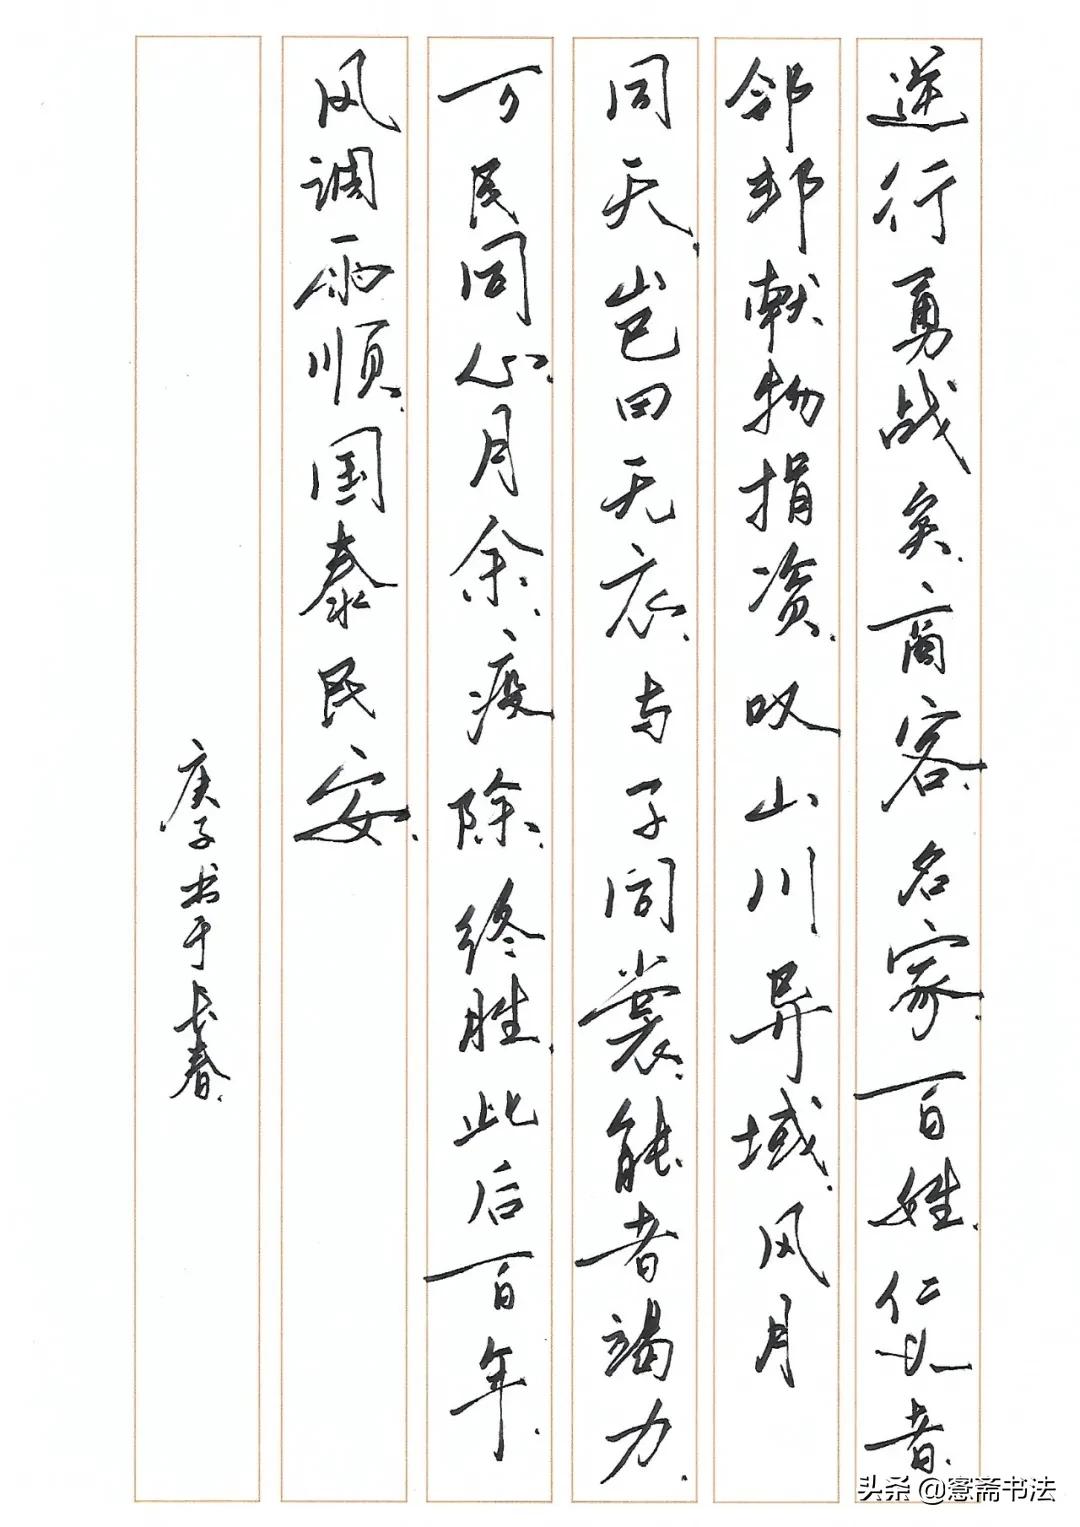 逆行勇战矣商客名家百姓仁义者
邻邦献物捐资叹山川异域风月
同天岂曰无衣与子同裳能者竭力
万民同心月余疫除终胜此后百年
风调雨顺国泰民安
庚子书于长春
头条 @愙斋书法